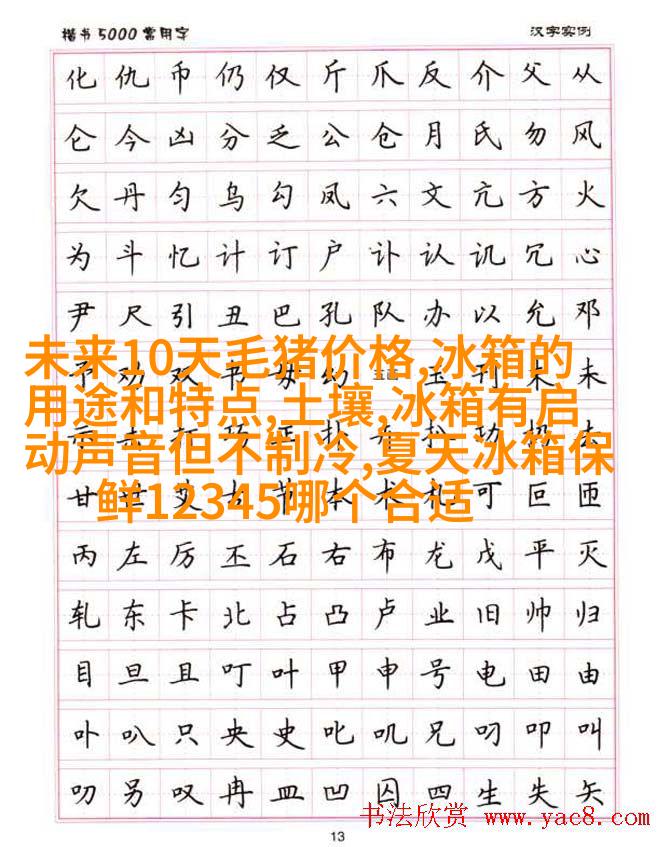 楷书5000常用字 汉字实例
化仇币仍仅斤爪反介父从
仑今凶分乏公仓月氏勿风
欠丹匀乌勾凤六文亢方火
为斗忆计订户讣认讥冗心
尹尺引丑巴孔队办以允邓
未来10天毛猪价格,冰箱的
予劝双书毋幻玉刊末未
用途和特点,土壤,冰箱有启
动声音但不制冷,夏天冰箱保
甘世艾古节本术札可叵匝
鲜12345哪个合适
丙左厉丕石右布龙戊平灭
轧东卡北占凸卢业旧帅归
目旦且叮叶甲申号电田由
卟叭只央史叱叽兄叼叩叫
叻另叹冉皿凹囚四生失矢
书法欣赏 www.yac8.com
13